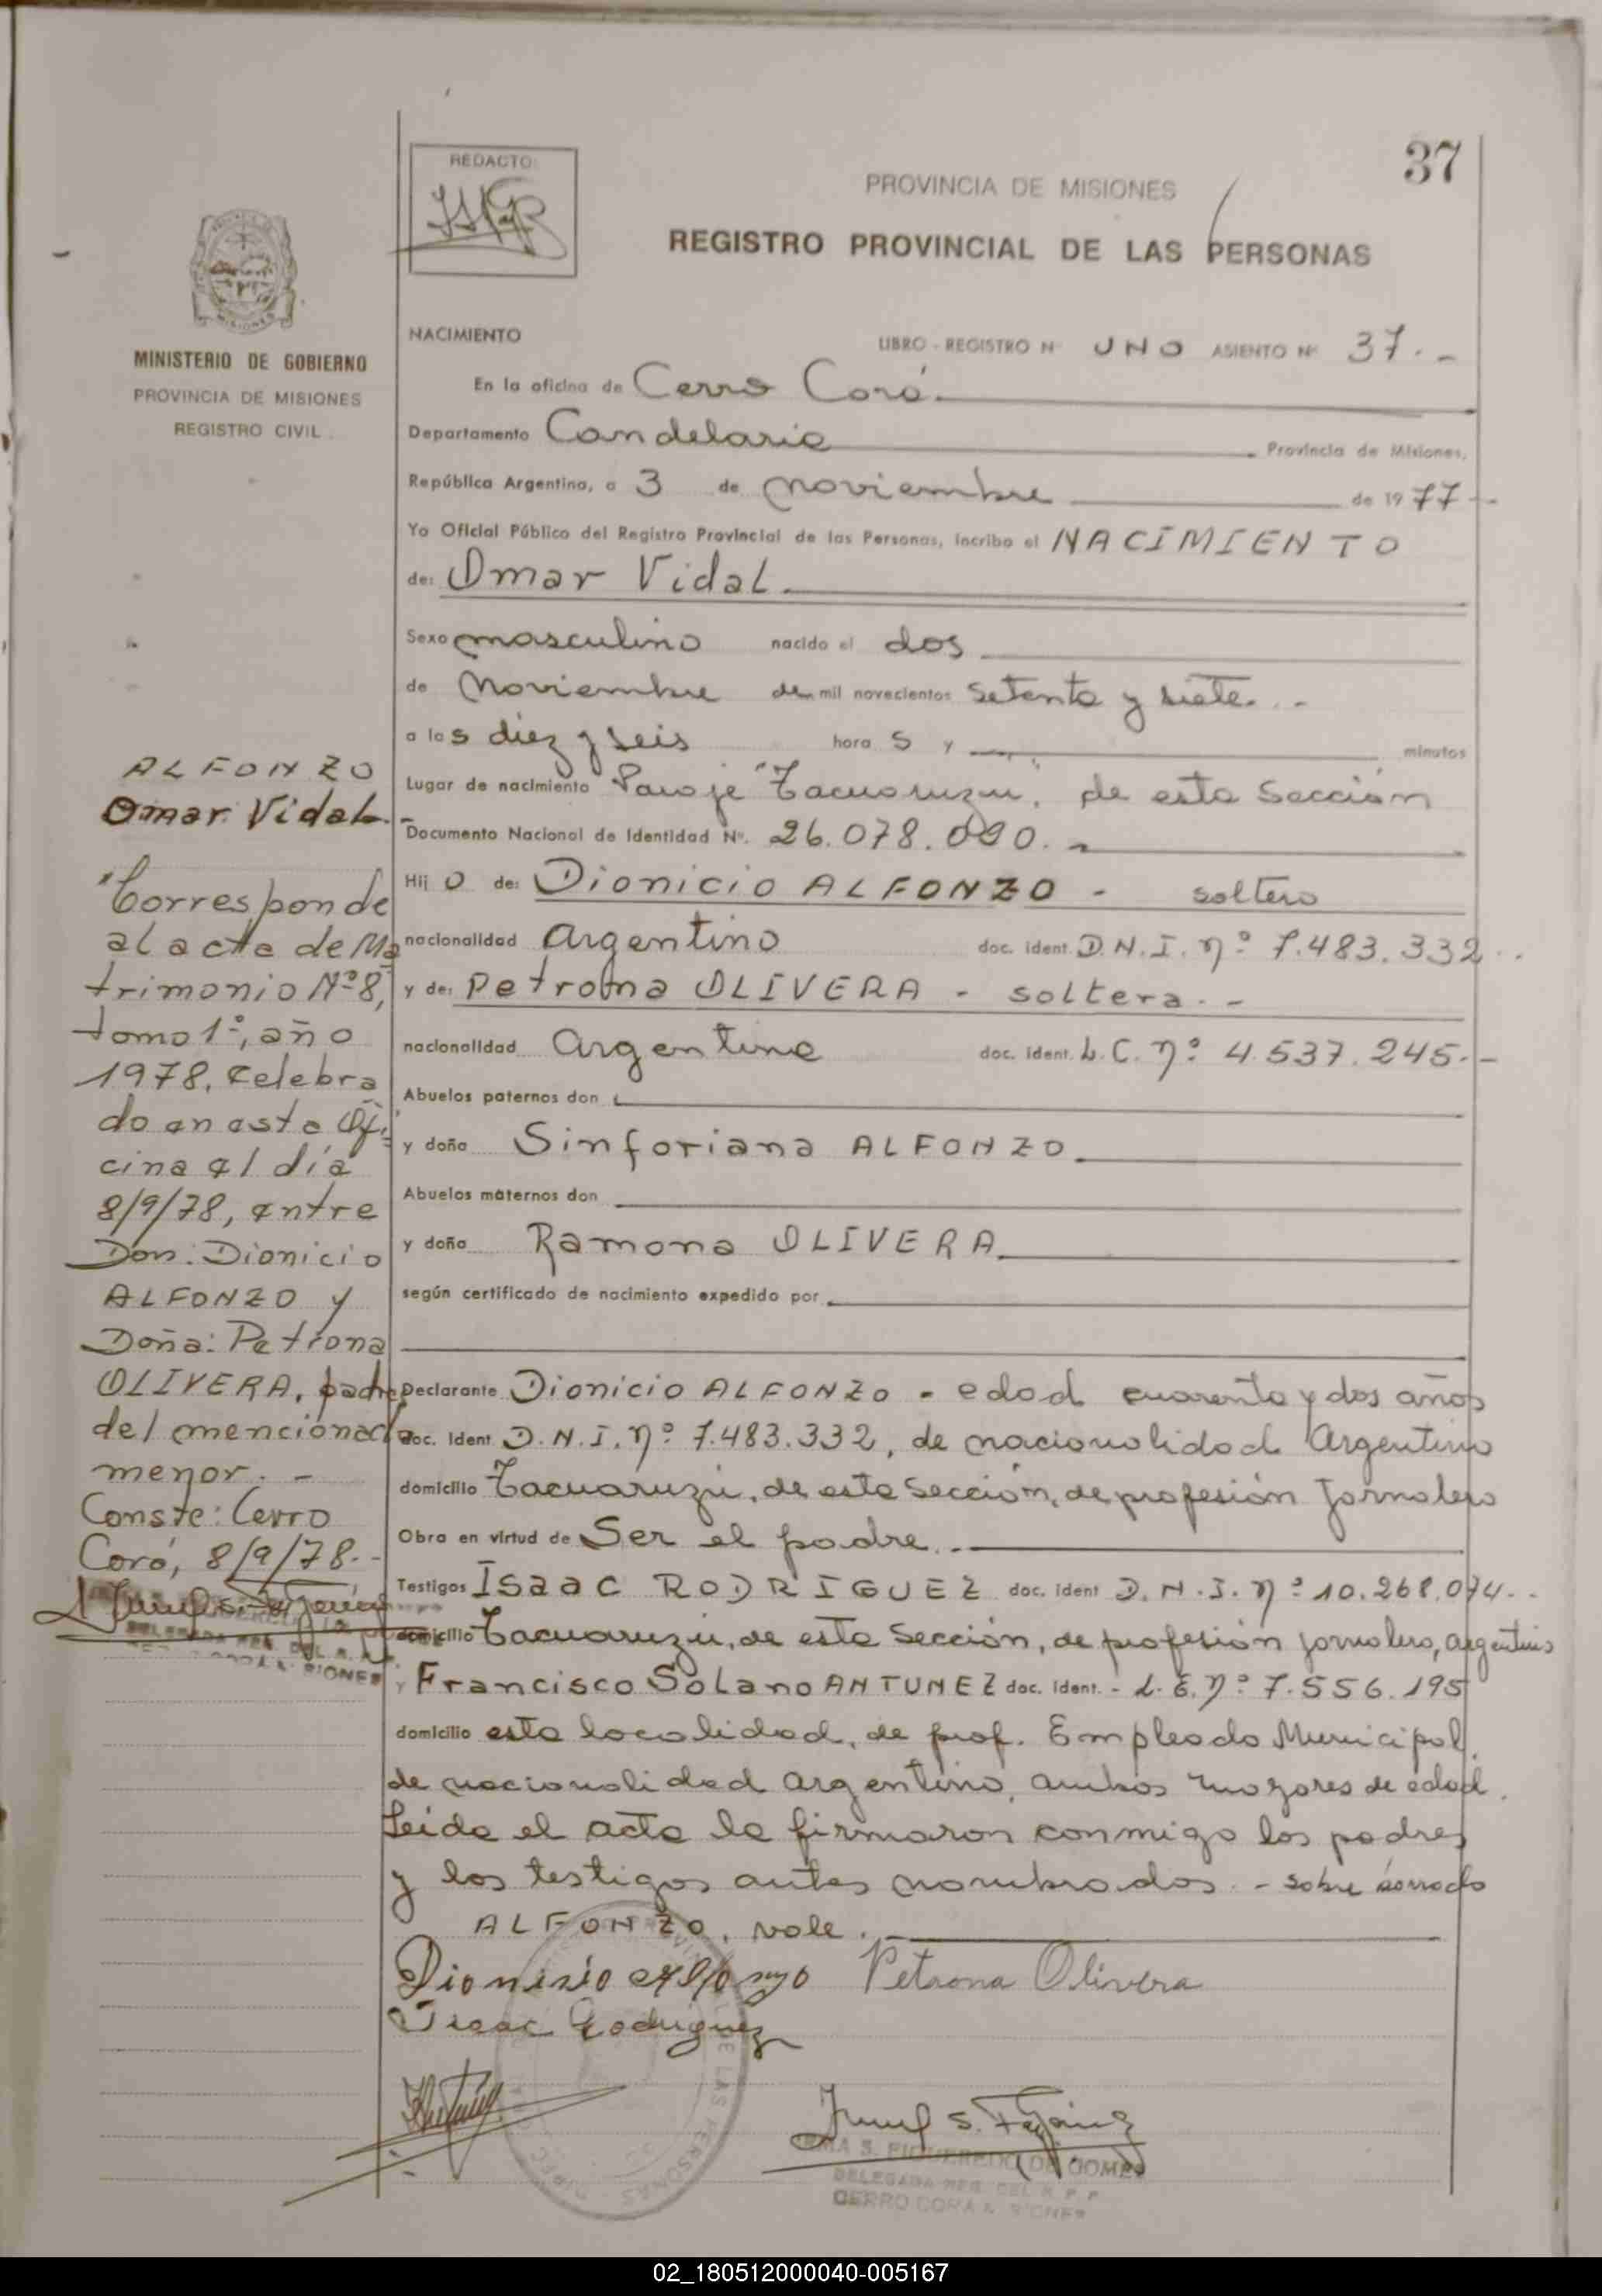 37
REDACTO:
PROVINCIA DE MISIONES
REGISTRO PROVINCIAL DE LAS PERSONAS
MISIONES
MINISTERIO DE GOBIERNO
PROVINCIA DE MISIONES
REGISTRO CIVIL
NACIMIENTO LIBRO - REGISTRO Nº UNO ASIENTO Nº 37.-
En la oficina de Cerro Corá.
Departamento Candelaria Provincia de Misiones,
República Argentina, a 3 de noviembre de 1977-
Yo Oficial Público del Registro Provincial de las Personas, Incribo el NACIMIENTO
de: Omar Vidal.
Sexo masculino nacido el dos
de Noviembre de mil novecientos setenta y siete..-
a las diez y seis horas y minutos
Lugar de nacimiento Paraje "Tacuaruzu", de esta Sección
Documento Nacional de Identidad Nº. 26.078.090.-
Hijo de: Dionicio ALFONZO - soltero
nacionalidad Argentino doc. ident. D.N.I. Nº 7.483.332..
y de: Petrona OLIVERA - soltera.-
nacionalidad Argentina doc. ident. L.C. Nº 4.537.245.-
Abuelos paternos don
y doña Sinforiana ALFONZO.
Abuelos maternos don
y doña Ramona OLIVERA.
según certificado de nacimiento expedido por
Declarante Dionicio ALFONZO - edad cuarenta y dos años
doc. Ident D.N.I. Nº 7.483.332, de nacionalidad Argentino
domicilio Tacuaruzu, de esta Sección, de profesión Jornalero
Obra en virtud de Ser el padre.-
Testigos ISaac RODRIGUEZ doc. ident D.N.I. Nº 10.268.074..
domicilio Tacuaruzu, de esta Sección, de profesión jornalero, argentino
y Francisco Solano ANTUNEZ doc. ident.- L.E. Nº 7.556.195
domicilio esta localidad, de prof. Empleado Municipal,
de nacionalidad argentino, ambos mayores de edad.
Leída el acta la firmaron conmigo los padres
y los testigos antes nombrados.- sobre borrado
ALFONZO, vale.
Dionisio Alfonzo Petrona Olivera
Isaac Rodriguez
IRMA S. FIGUEREDO DE GOMEZ
DELEGADA REG. DEL R. P. P.
CERRO CORA MISIONES
ALFONZO
Omar Vidal.
"Corresponde
al acta de Ma
trimonio Nº 8,
tomo 1º, año
1978, celebra
do en esta Ofi
cina el día
8/9/78, entre
Don: Dionicio
ALFONZO y
Doña: Petrona
OLIVERA, padres
del mencionado
menor.-
Conste: Cerro
Corá, 8/9/78.-
DELEGADA REG. DEL R. P. P.
02_180512000040-005167